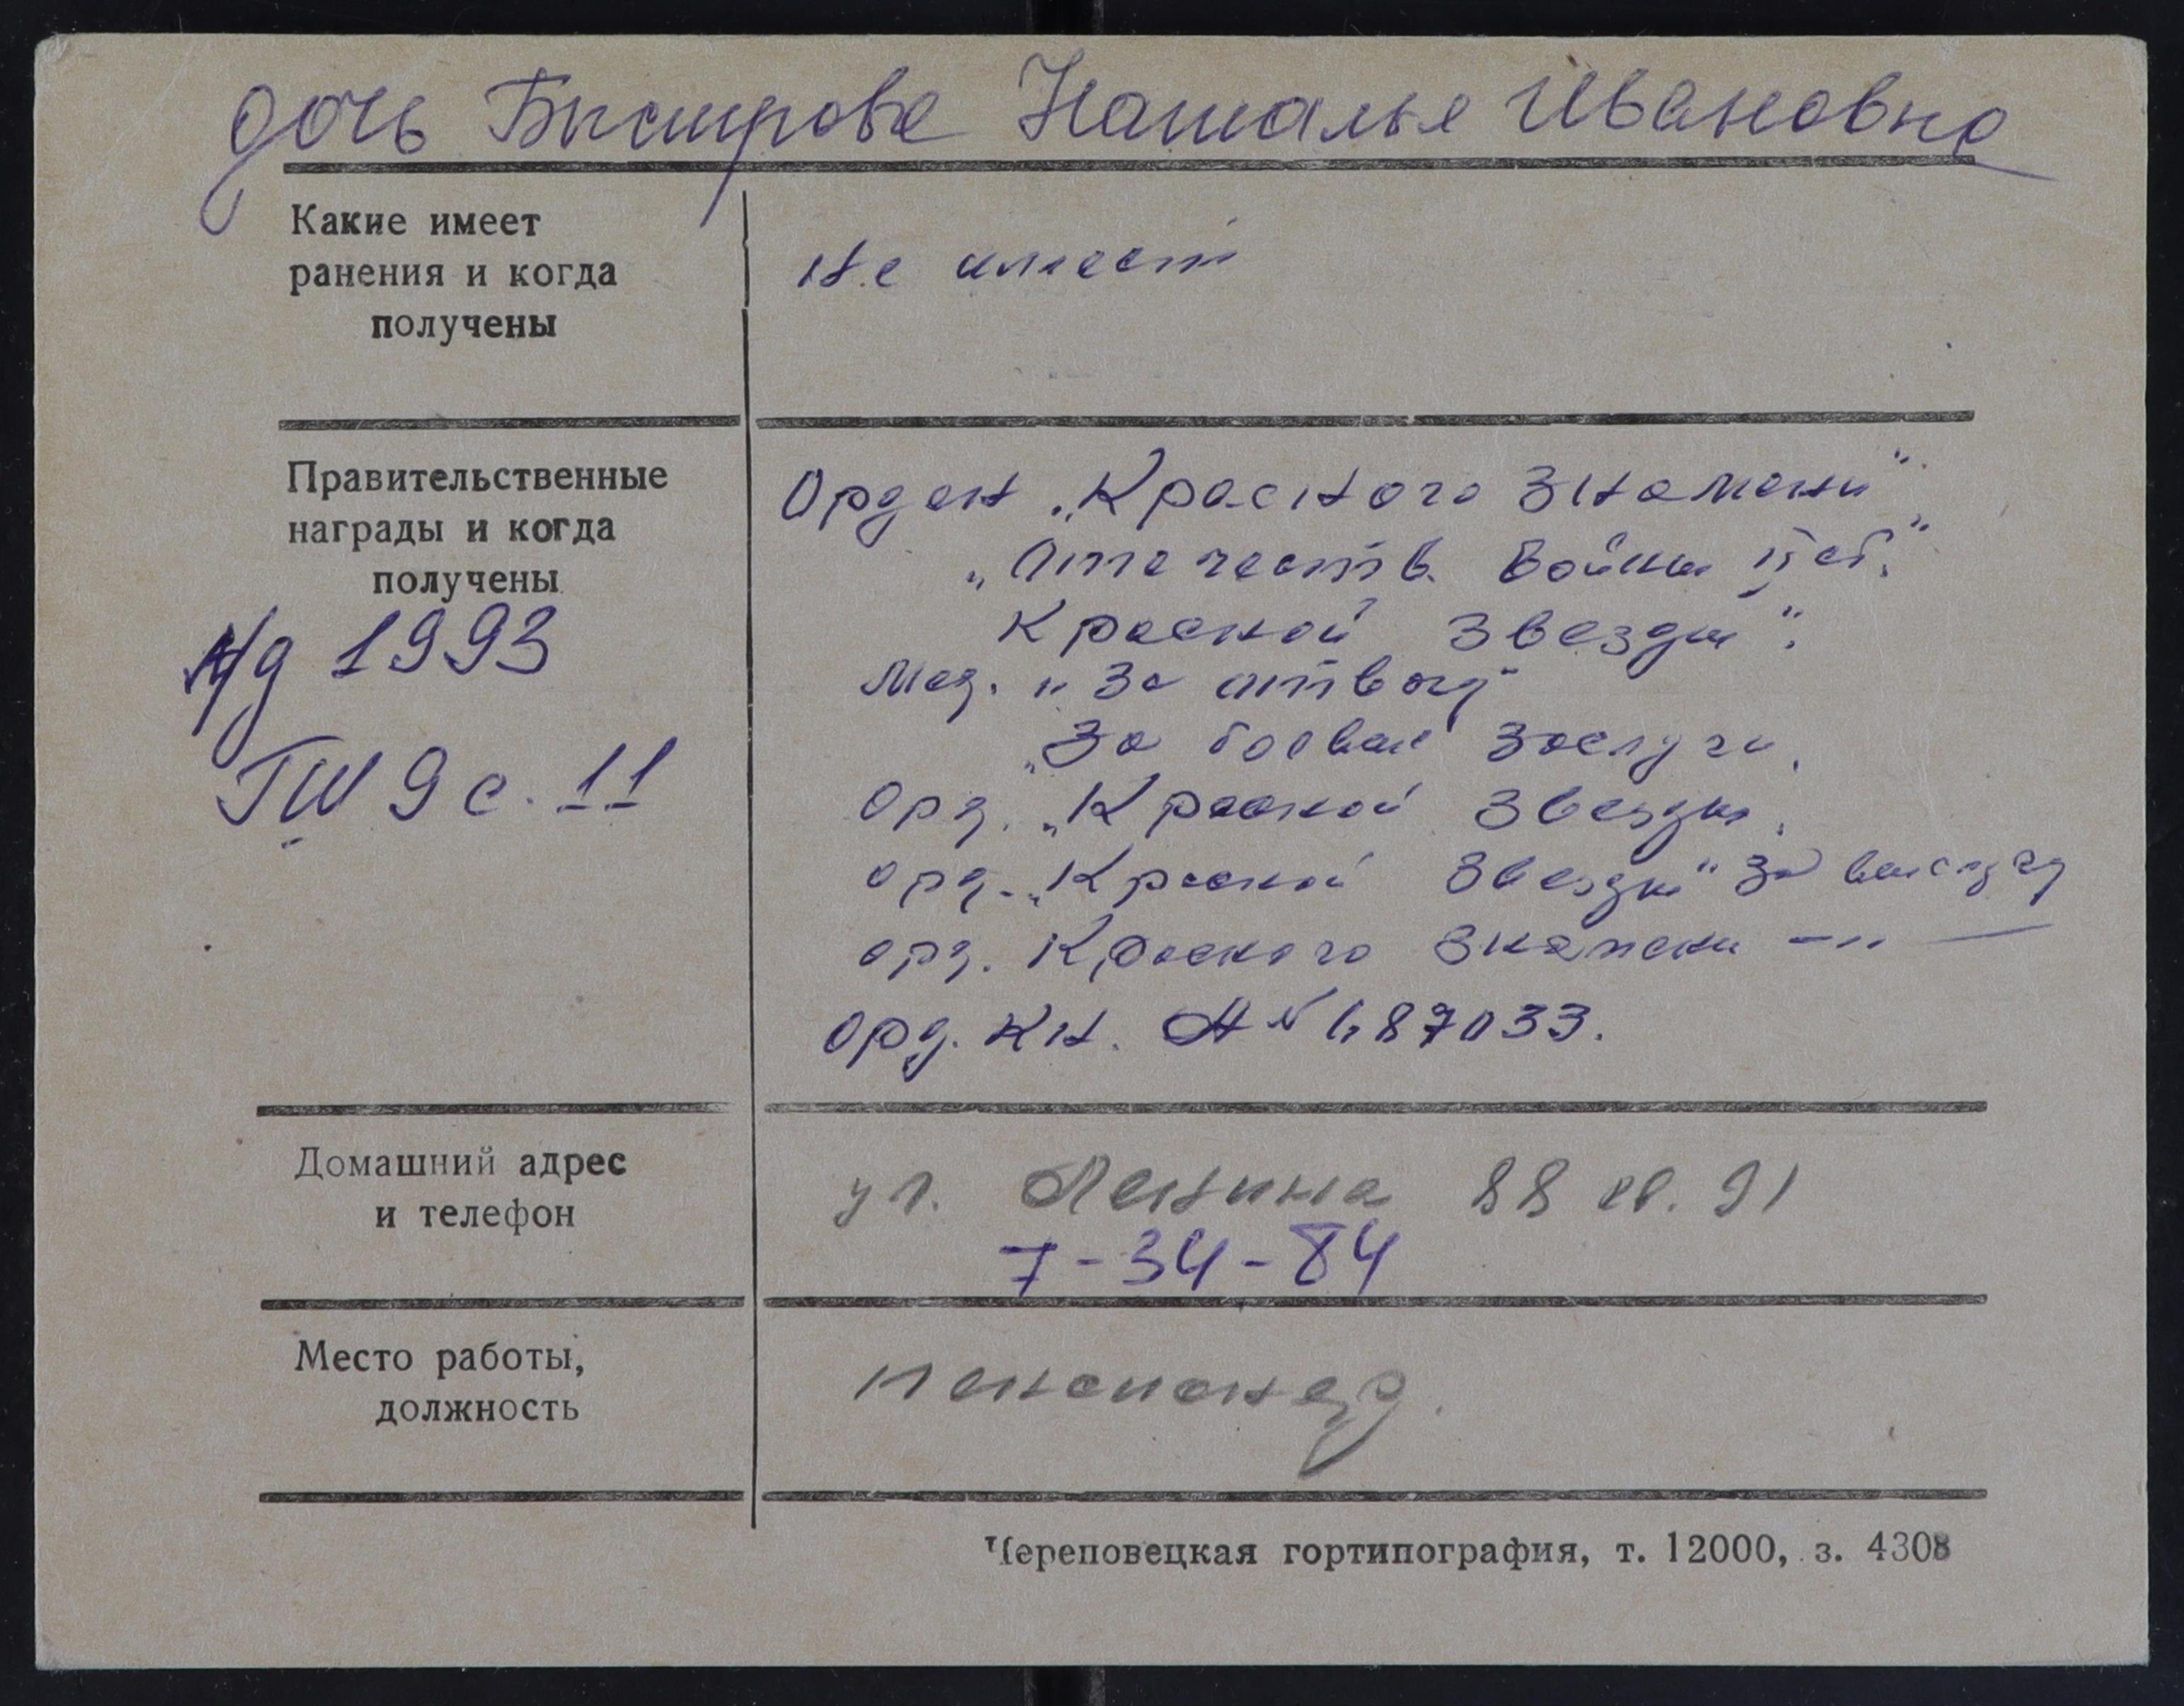 дочь Быстрова Наталья Ивановна
Какие имеет
ранения и когда
получены
не имеет
Правительственные
награды и когда
получены
н/д 1993
ТШ 9 с. 11
Орден „Красного Знамени"
„Отечеств. войны II ст."
Красной Звезды".
Мед. „За отвагу"
„За боевые заслуги.
Орд. „Красной Звезды.
орд. „Красной Звезды" за выслугу
орд. Красного Знамени —"—
Орд. Кн. А №
Домашний адрес
и телефон
ул. Ленина 88 кв. 91
7-34-84
Место работы,
должность
пенсионер.
Череповецкая гортипография, т. 12000, з. 4308